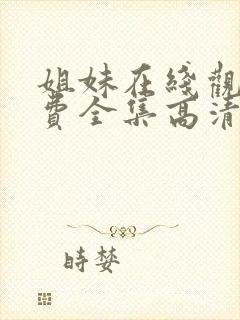 姐妹在綫觀
費全集高清
時婪